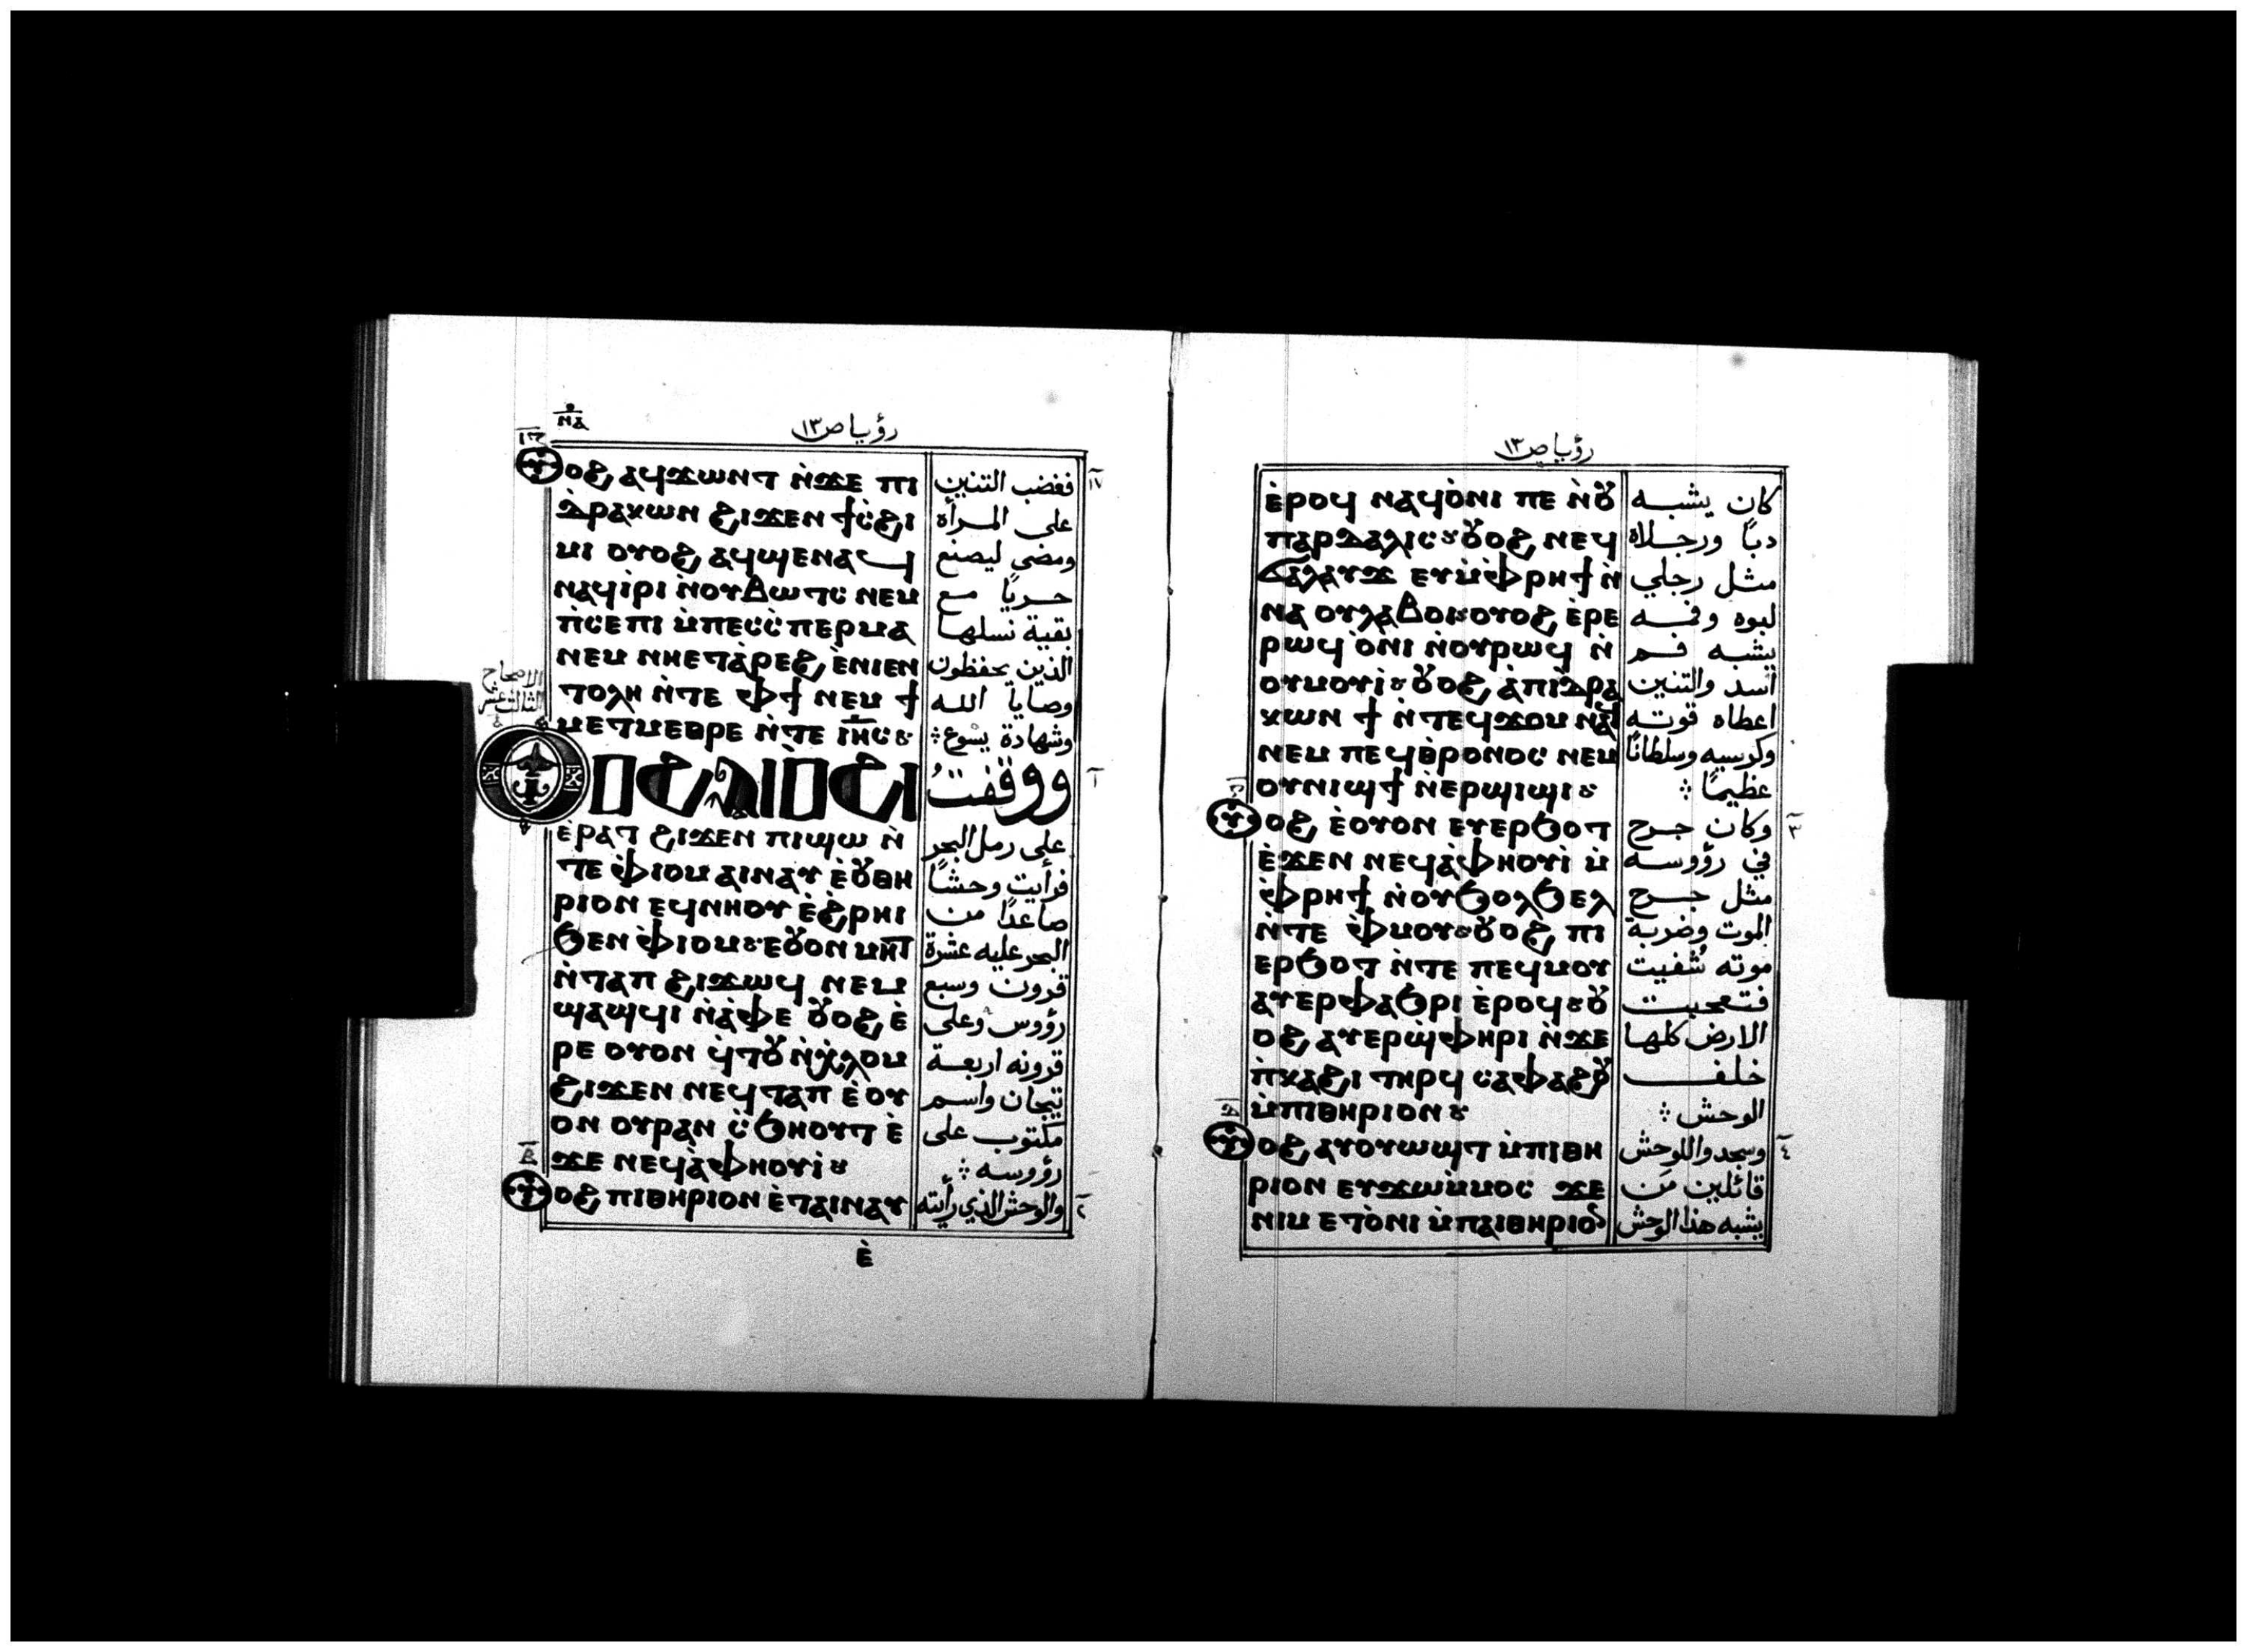 ⲛⲁ
رؤيا ص ١٣
ⲓⲍ
ⲟⲩⲟϩ ⲁϥϫⲱⲛⲧ ⲛ̀ϫⲉ ⲡⲓ
ⲇ̀ⲣⲁⲕⲱⲛ ϩⲓϫⲉⲛ ϯⲥ̀ϩⲓ
ⲙⲓ ⲟⲩⲟϩ ⲁϥϣⲉⲛⲁϥ
ⲛⲁϥⲓ̀ⲣⲓ ⲛ̀ⲟⲩⲃⲱⲧⲥ ⲛⲉⲙ
ⲡ̀ⲥⲉⲡⲓ ⲙ̀ⲡⲉⲥⲥ̀ⲡⲉⲣⲙⲁ
ⲛⲉⲙ ⲛⲏⲉⲧⲁ̀ⲣⲉϩ ⲉ̀ⲛⲓⲉⲛ
ⲧⲟⲗⲏ ⲛ̀ⲧⲉ ⲫϯ ⲛⲉⲙ ϯ
ⲙⲉⲧⲙⲉⲑⲣⲉ ⲛ̀ⲧⲉ ⲓⲏⲥ
ⲟⲩⲟϩ ⲁⲓⲟ̀ϩⲓ
ⲉ̀ⲣⲁⲧ ϩⲓϫⲉⲛ ⲡⲓϣⲱ ⲛ̀
ⲧⲉ ⲫ̀ⲓⲟⲙ ⲁⲓⲛⲁⲩ ⲉ̀ⲟⲩⲑⲏ
ⲣⲓⲟⲛ ⲉϥⲛⲏⲟⲩ ⲉ̀ϩ̀ⲣⲏⲓ
ϧⲉⲛ ⲫ̀ⲓⲟⲙ ⲉⲟⲩⲟⲛ ⲙⲏⲧ
ⲛ̀ⲧⲁⲡ ϩⲓϫⲱϥ ⲛⲉⲙ
ϣⲁϣϥⲓ ⲛ̀ⲁ̀ⲫⲉ ⲟⲩⲟϩ ⲉ̀
ⲣⲉ ⲟⲩⲟⲛ ϥ̀ⲧⲟⲩ ⲛ̀ⲭ̀ⲗⲟⲙ
ϩⲓϫⲉⲛ ⲛⲉϥⲧⲁⲡ ⲉ̀ⲟⲩ
ⲟⲛ ⲟⲩⲣⲁⲛ ⲥ̀ϧⲏⲟⲩⲧ ⲉ̀
ϫⲉ ⲛⲉϥⲁ̀ⲫⲏⲟⲩⲓ̀
ⲃ
ⲟⲩⲟϩ ⲡⲓⲑⲏⲣⲓⲟⲛ ⲉ̀ⲧⲁⲓⲛⲁⲩ
ⲉ̀
الاصحاح
الثالث عشر
١٧
فغضب التنين
على المرأة
ومضى ليصنع
حربًا مع
بقية نسلها
الذين يحفظون
وصايا الله
وشهادة يسوع
١
ووقفتُ
على رمل البحر
فرأيت وحشًا
صاعدًا من
البحر عليه عشرة
قرون وسبع
رؤوس وعلى
قرونه اربعة
تيجان واسم
مكتوب على
رؤوسه
٢
والوحش الذي رأيته
رؤيا ص ١٣
ⲉ̀ⲣⲟϥ ⲛⲁϥⲟ̀ⲛⲓ ⲡⲉ ⲛ̀ⲟⲩ
ⲡⲁⲣⲇⲁⲗⲓⲥ ⲟⲩⲟϩ ⲛⲉϥ
ϭⲁⲗⲁⲩϫ ⲉⲩⲙ̀ⲫ̀ⲣⲏϯ ⲛ̀
ⲛⲁ ⲟⲩⲗⲁⲃⲟⲓ ⲟⲩⲟϩ ⲉ̀ⲣⲉ
ⲣⲱϥ ⲟ̀ⲛⲓ ⲛ̀ⲟⲩⲣⲱϥ ⲛ̀
ⲟⲩⲙⲟⲩⲓ̀ ⲟⲩⲟϩ ⲁ̀ⲡⲓⲇ̀ⲣⲁ
ⲕⲱⲛ ϯ ⲛ̀ⲧⲉϥϫⲟⲙ ⲛⲁϥ
ⲛⲉⲙ ⲡⲉϥⲑⲣⲟⲛⲟⲥ ⲛⲉⲙ
ⲟⲩⲛⲓϣϯ ⲛ̀ⲉⲣϣⲓϣⲓ
ⲅ
ⲟⲩⲟϩ ⲉ̀ⲟⲩⲟⲛ ⲉⲩⲉⲣϧⲟⲧ
ⲉ̀ϫⲉⲛ ⲛⲉϥⲁ̀ⲫⲏⲟⲩⲓ̀ ⲙ̀
ⲫ̀ⲣⲏϯ ⲛ̀ⲟⲩϧⲟⲗϧⲉⲗ
ⲛ̀ⲧⲉ ⲫ̀ⲙⲟⲩ ⲟⲩⲟϩ ⲡⲓ
ⲉⲣϧⲟⲧ ⲛ̀ⲧⲉ ⲡⲉϥⲙⲟⲩ
ⲁⲩⲉⲣⲫⲁϧⲣⲓ ⲉ̀ⲣⲟϥ ⲟⲩ
ⲟϩ ⲁⲩⲉⲣϣ̀ⲫⲏⲣⲓ ⲛ̀ϫⲉ
ⲡ̀ⲕⲁϩⲓ ⲧⲏⲣϥ ⲥⲁⲫⲁϩⲟⲩ
ⲙ̀ⲡⲓⲑⲏⲣⲓⲟⲛ
ⲇ
ⲟⲩⲟϩ ⲁⲩⲟⲩⲱϣⲧ ⲙ̀ⲡⲓⲑⲏ
ⲣⲓⲟⲛ ⲉⲩϫⲱⲙ̀ⲙⲟⲥ ϫⲉ
ⲛⲓⲙ ⲉⲧⲟ̀ⲛⲓ ⲙ̀ⲡⲁⲓⲑⲏⲣⲓⲟⲛ
كان يشبه
دبًا ورجلاه
مثل رجلي
لبوه وفمه
يشبه فم
أسد والتنين
اعطاه قوته
وكرسيه وسلطانًا
عظيمًا
٣
وكان جرح
في رؤوسه
مثل جرح
الموت وضربة
موته شُفيت
فتعجبت
الارض كلها
خلف
الوحش
٤
وسجدوا للوحش
قائلين مَن
يشبه هذا الوحش